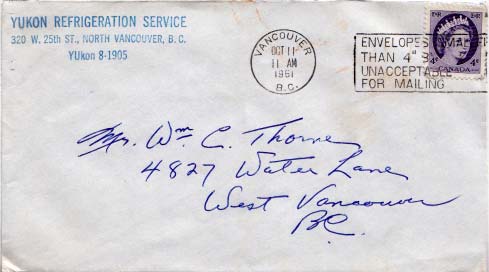 YUKON REFRIGERATION SERVICE
320 W. 25th ST., NORTH VANCOUVER, B.C.
YUkon 8-1905
VANCOUVER
OCT 11
11 AM
1961
B.C.
ENVELOPES SMALLER
THAN 4" B
UNACCEPTABLE
FOR MAILING
4¢ 4¢
CANADA
Mr. Wm. C. Thorne
4827 Water Lane
West Vancouver
BC.